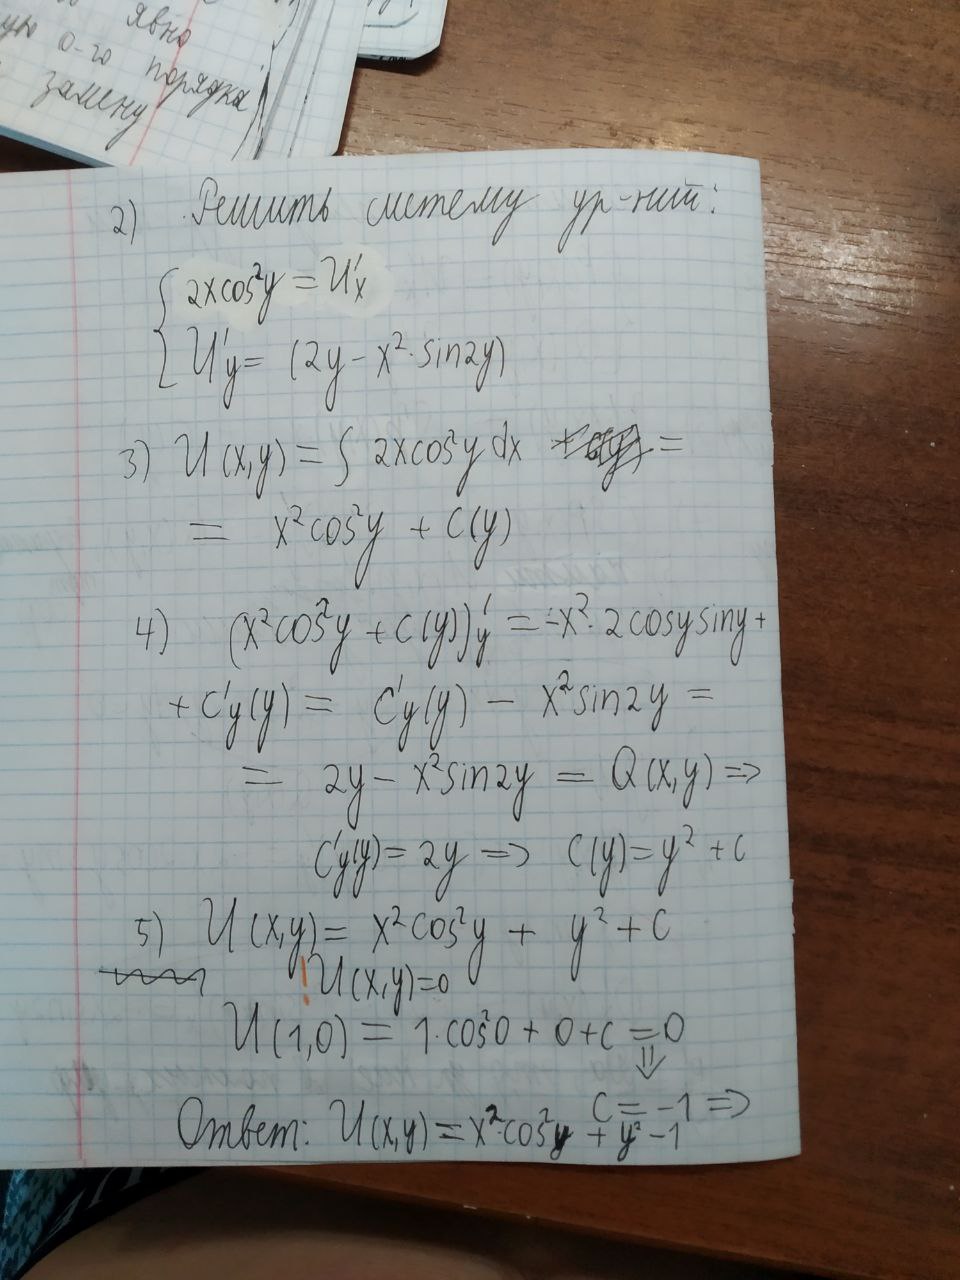 явно
ую 0-го порядка
замену
2) Решить систему ур-ний:
{ 2xcos²y = U'x
U'y = (2y - x²·sin2y)
3) U(x,y) = ∫ 2xcos²y dx =
= x²cos²y + C(y)
4) (x²cos²y + C(y))'y = -x²·2cosysiny +
+ C'y(y) = C'y(y) - x²sin2y =
= 2y - x²sin2y = Q(x,y) =>
C'y(y) = 2y => C(y) = y² + C
5) U(x,y) = x²cos²y + y² + C
! U(x,y)=0
U(1,0) = 1·cos²0 + 0 + C = 0
⇓
C = -1 =>
Ответ: U(x,y) = x²·cos²y + y² - 1